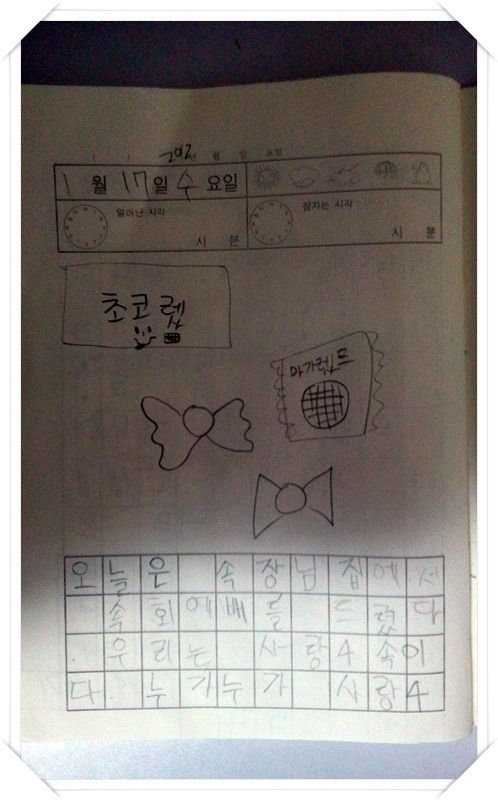 1월 17일 수요일
일어난 시각
잠자는 시각
시 분
시 분
초코렜
마가렛트
오늘은 속장님 집에서
속회예배를 드렸다
우리는 사랑4속이
다. 누가누가 사랑4